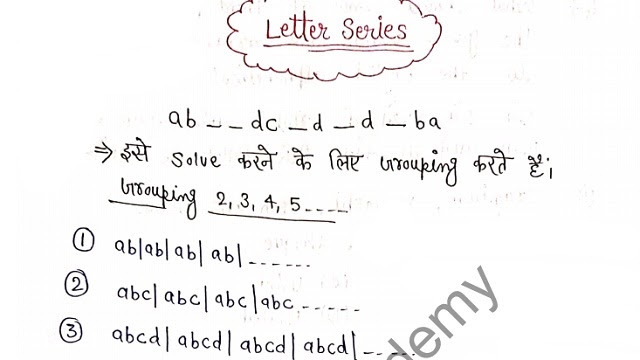 Letter Series
ab _ _ dc _ d _ d _ ba
⇒ इसे solve करने के लिए Grouping करते हैं।
Grouping 2, 3, 4, 5 - - - -
① ab|ab|ab|ab| - - - - - -
② abc|abc|abc|abc - - - - -
③ abcd|abcd|abcd|abcd| - - - -
demy